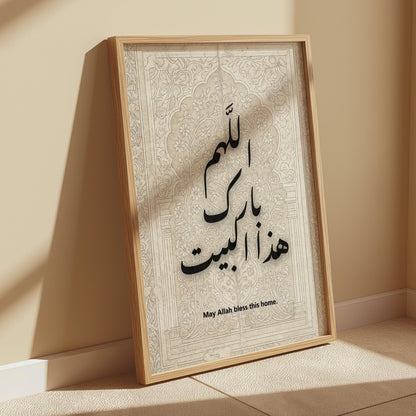 اللّهم
بارك
هذا البيت
May Allah bless this home.